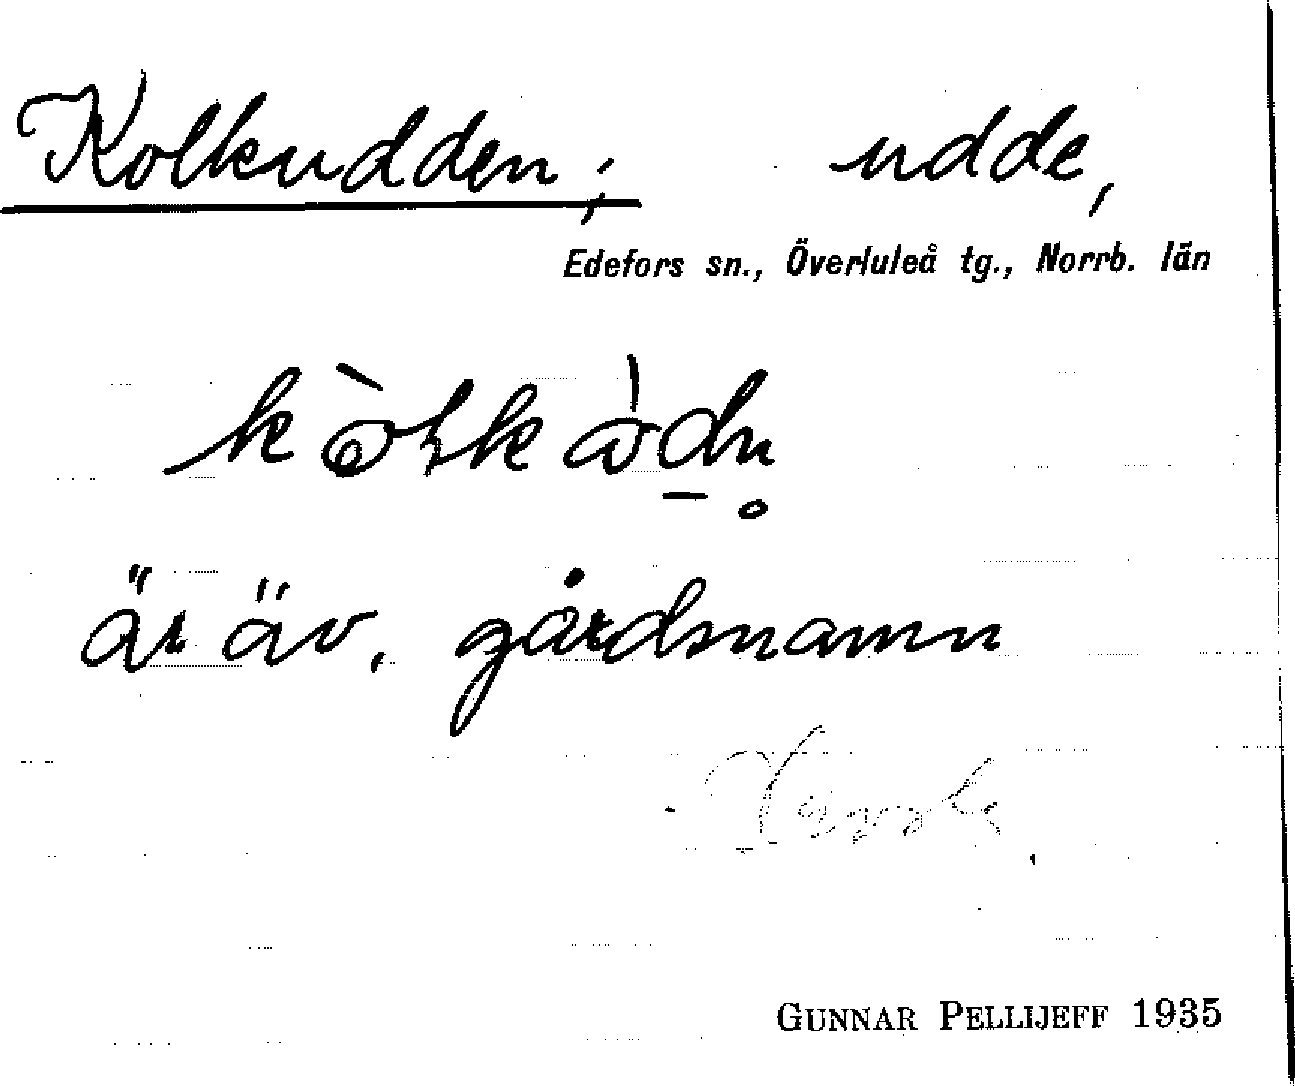 Kolkudden; udde,
Edefors sn., Överluleå tg., Norrb. län
är äv. gårdsnamn
GUNNAR PELLIJEFF 1935